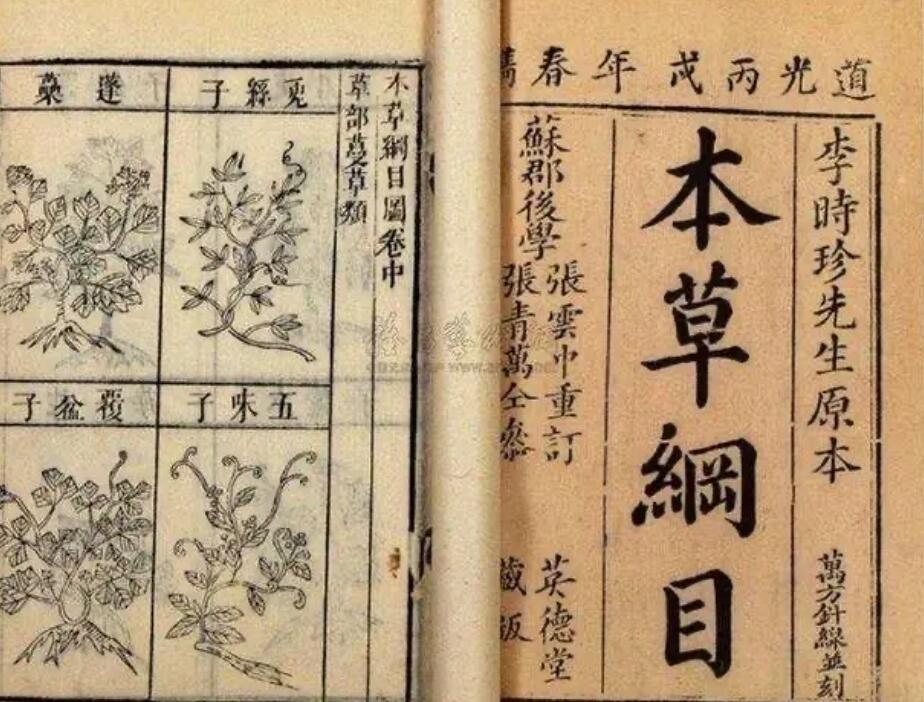 道光丙戌年春
李時珍先生原本
萬方針線並刻
本草綱目
蘇郡後學
張雲中重訂
張青萬仝參
英德堂
藏版
本草綱目圖卷中
草部蔓草類
兎絲子
蓬蘽
五味子
覆盆子